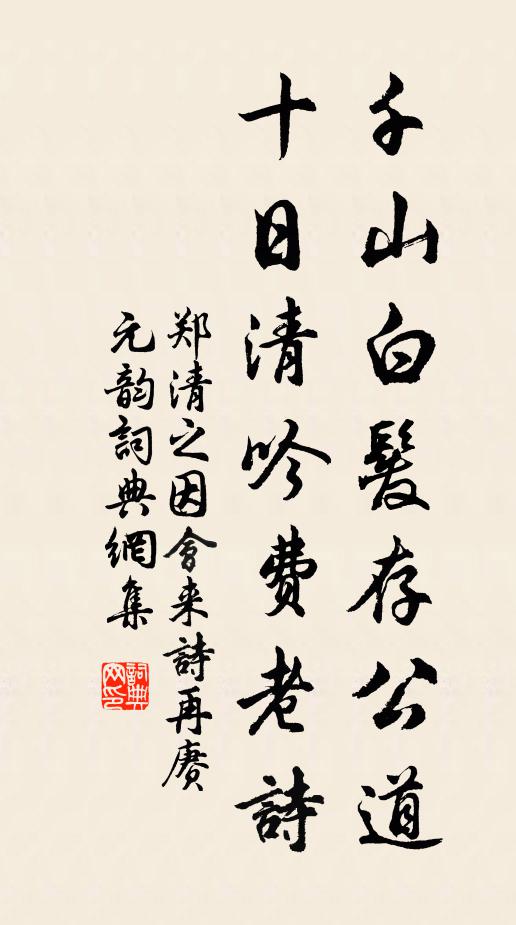 千山白髮存公道
十日清吟費老詩
郑清之因會来詩再赓
元韵詞典網集
詞典网印